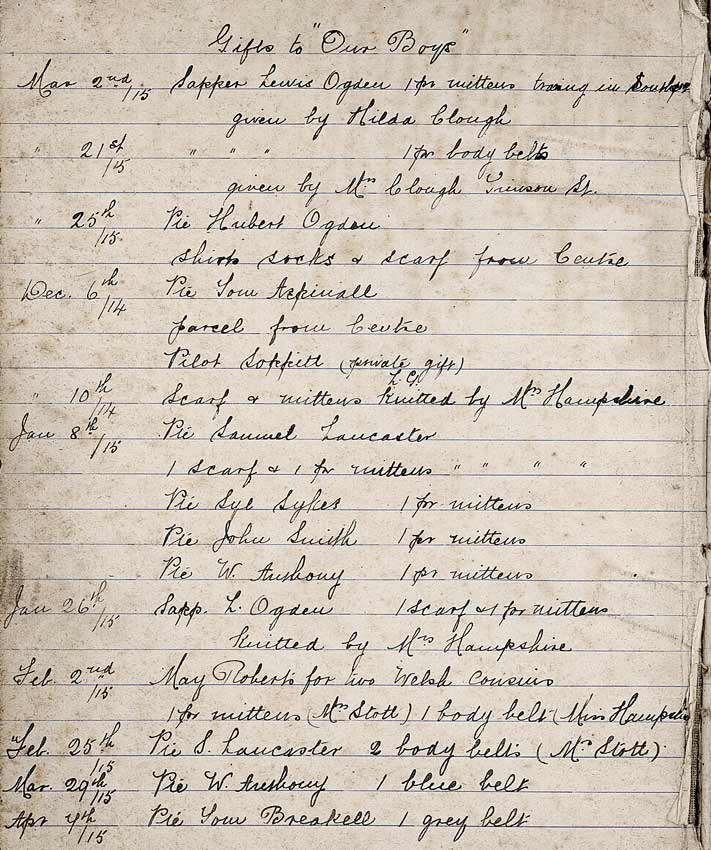 Gifts to "Our Boys"
Mar 2nd/15 Sapper Lewis Ogden 1 pr mittens traing in
given by Hilda Clough
" 21st/15 " " " 1 pr body belts
given by Mrs Clough Vinson St.
" 25th/15 Pte Hubert Ogden
shirts socks & scarf from Centre
Dec. 6th/14 Pte Tom Aspinall
parcel from Centre
Pilot (private gift)
" 10th/14 Scarf & mittens knitted by Mrs Hampshire
Jan 8th/15 Pte Samuel Lancaster
1 scarf & 1 pr mittens " " " "
Pte Syl Sykes 1 pr mittens
Pte John Smith 1 pr mittens
Pte W. Anthony 1 pr mittens
Jan 26th/15 Sapp. L. Ogden 1 scarf & 1 pr mittens
knitted by Mrs Hampshire
Feb. 2nd/15 May Roberts for two Welsh cousins
1 pr mittens (Mrs Stott) 1 body belt (Miss
Feb. 25th/15 Pte S. Lancaster 2 body belts (Mrs Stott)
Mar. 29th/15 Pte W. Anthony 1 blue belt
Apr 4th/15 Pte Tom Breakell 1 grey belt